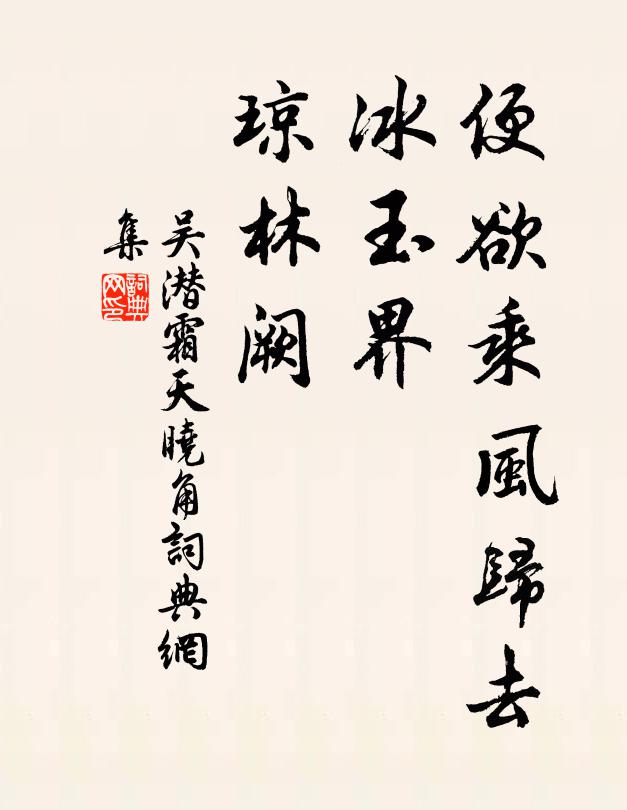 便欲乘風歸去
冰玉界
琼林阙
吴潜霜天曉角詞典網
集
詞典
网印